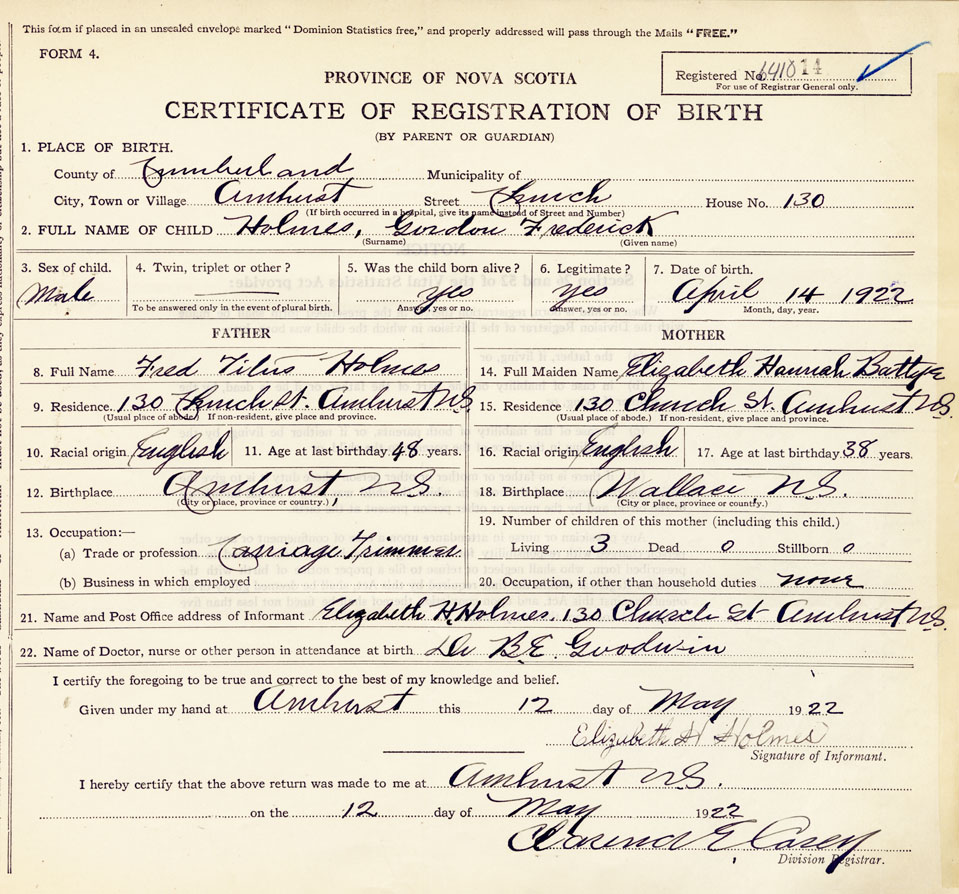 This form if placed in an unsealed envelope marked "Dominion Statistics free," and properly addressed will pass through the Mails "FREE."
FORM 4.
PROVINCE OF NOVA SCOTIA
Registered No. 641014
For use of Registrar General only.
CERTIFICATE OF REGISTRATION OF BIRTH
(BY PARENT OR GUARDIAN)
1. PLACE OF BIRTH.
County of Cumberland Municipality of
City, Town or Village Amherst Street Church House No. 130
(If birth occurred in a hospital, give its name instead of Street and Number)
2. FULL NAME OF CHILD Holmes, Gordon Frederick
(Surname) (Given name)
3. Sex of child. 4. Twin, triplet or other? 5. Was the child born alive? 6. Legitimate? 7. Date of birth.
Male yes yes April 14 1922
To be answered only in the event of plural birth. Answer, yes or no. Answer, yes or no. Month, day, year.
FATHER MOTHER
8. Full Name Fred Titus Holmes 14. Full Maiden Name Elizabeth Hannah Battye
9. Residence 130 Church St. Amherst N.S. 15. Residence 130 Church St. Amherst N.S.
(Usual place of abode) If non-resident, give place and province. (Usual place of abode.) If non-resident, give place and province.
10. Racial origin English 11. Age at last birthday 48 years. 16. Racial origin English 17. Age at last birthday 38 years.
12. Birthplace Amherst, N.S. 18. Birthplace Wallace, N.S.
(City or place, province or country.) (City or place, province or country.)
13. Occupation:— 19. Number of children of this mother (including this child.)
(a) Trade or profession Carriage Trimmer Living 3 Dead 0 Stillborn 0
(b) Business in which employed 20. Occupation, if other than household duties none
21. Name and Post Office address of Informant Elizabeth H. Holmes. 130 Church St Amherst N.S.
22. Name of Doctor, nurse or other person in attendance at birth Dr B.E. Goodwin
I certify the foregoing to be true and correct to the best of my knowledge and belief.
Given under my hand at Amherst this 12 day of May 1922
Elizabeth H Holmes
Signature of Informant.
I hereby certify that the above return was made to me at Amherst N.S.
on the 12 day of May 1922
Clarence E Casey
Division Registrar.